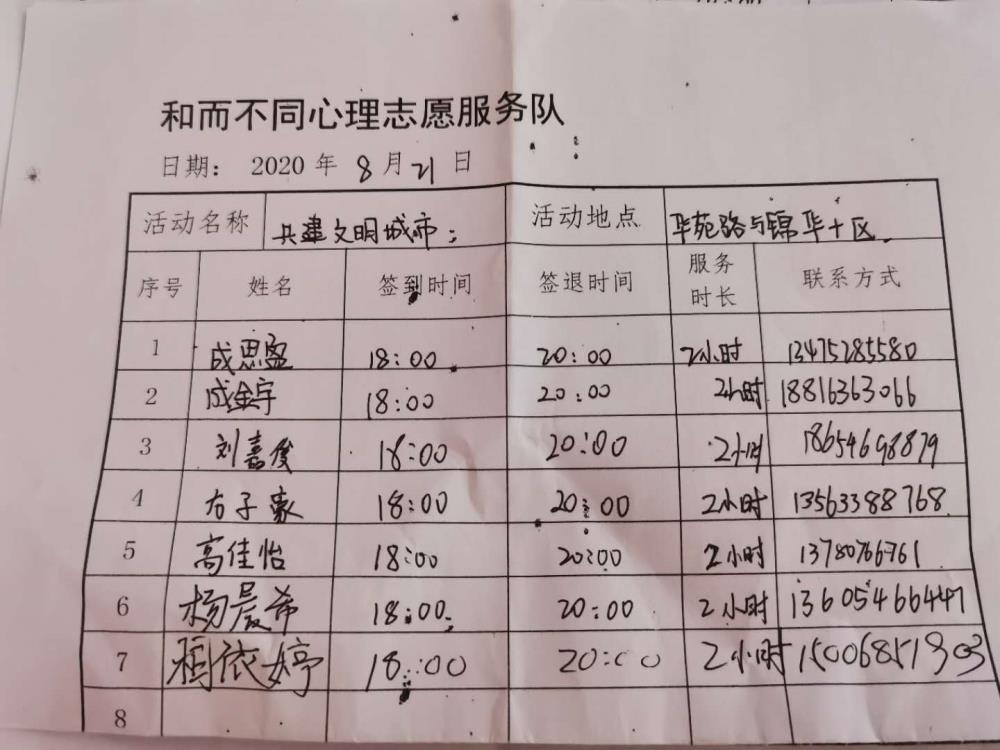 和而不同心理志愿服务队
日期： 2020 年 8 月 21 日
活动名称 共建文明城市； 活动地点 华苑路与锦华十区.
序号 姓名 签到时间 签退时间 服务时长 联系方式
1 成思盈 18:00 20:00 2小时 13475285580
2 成金宇 18:00 20:00 2小时 18816363066
3 刘嘉俊 18:00 20:00 2小时 18654698879
4 方子豪 18:00 20:00 2小时 13563388768
5 高佳怡 18:00 20:00 2小时 13780766761
6 杨晨希 18:00 20:00 2小时 13605466447
7 依婷 18:00 20:00 2小时 15006851303
8